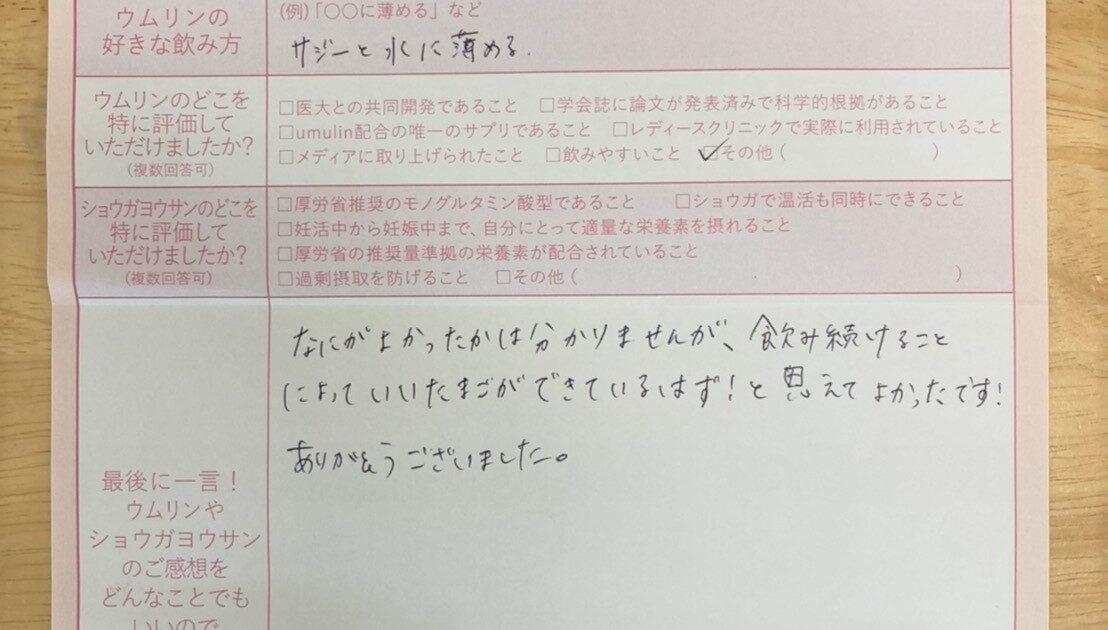 ウムリンの
好きな飲み方
(例)「〇〇に薄める」など
サジーと水に薄める.
ウムリンのどこを
特に評価して
いただけましたか?
(複数回答可)
□医大との共同開発であること □学会誌に論文が発表済みで科学的根拠があること
□umulin配合の唯一のサプリであること □レディースクリニックで実際に利用されていること
□メディアに取り上げられたこと □飲みやすいこと ☑その他( )
ショウガヨウサンのどこを
特に評価して
いただけましたか?
(複数回答可)
□厚労省推奨のモノグルタミン酸型であること □ショウガで温活も同時にできること
□妊活中から妊娠中まで、自分にとって適量な栄養素を摂れること
□厚労省の推奨量準拠の栄養素が配合されていること
□過剰摂取を防げること □その他( )
最後に一言!
ウムリンや
ショウガヨウサン
のご感想を
どんなことでも
いいので
なにがよかったかは分かりませんが、飲み続けること
によっていいたまごができているはず!と思えてよかったです!
ありがとうございました。